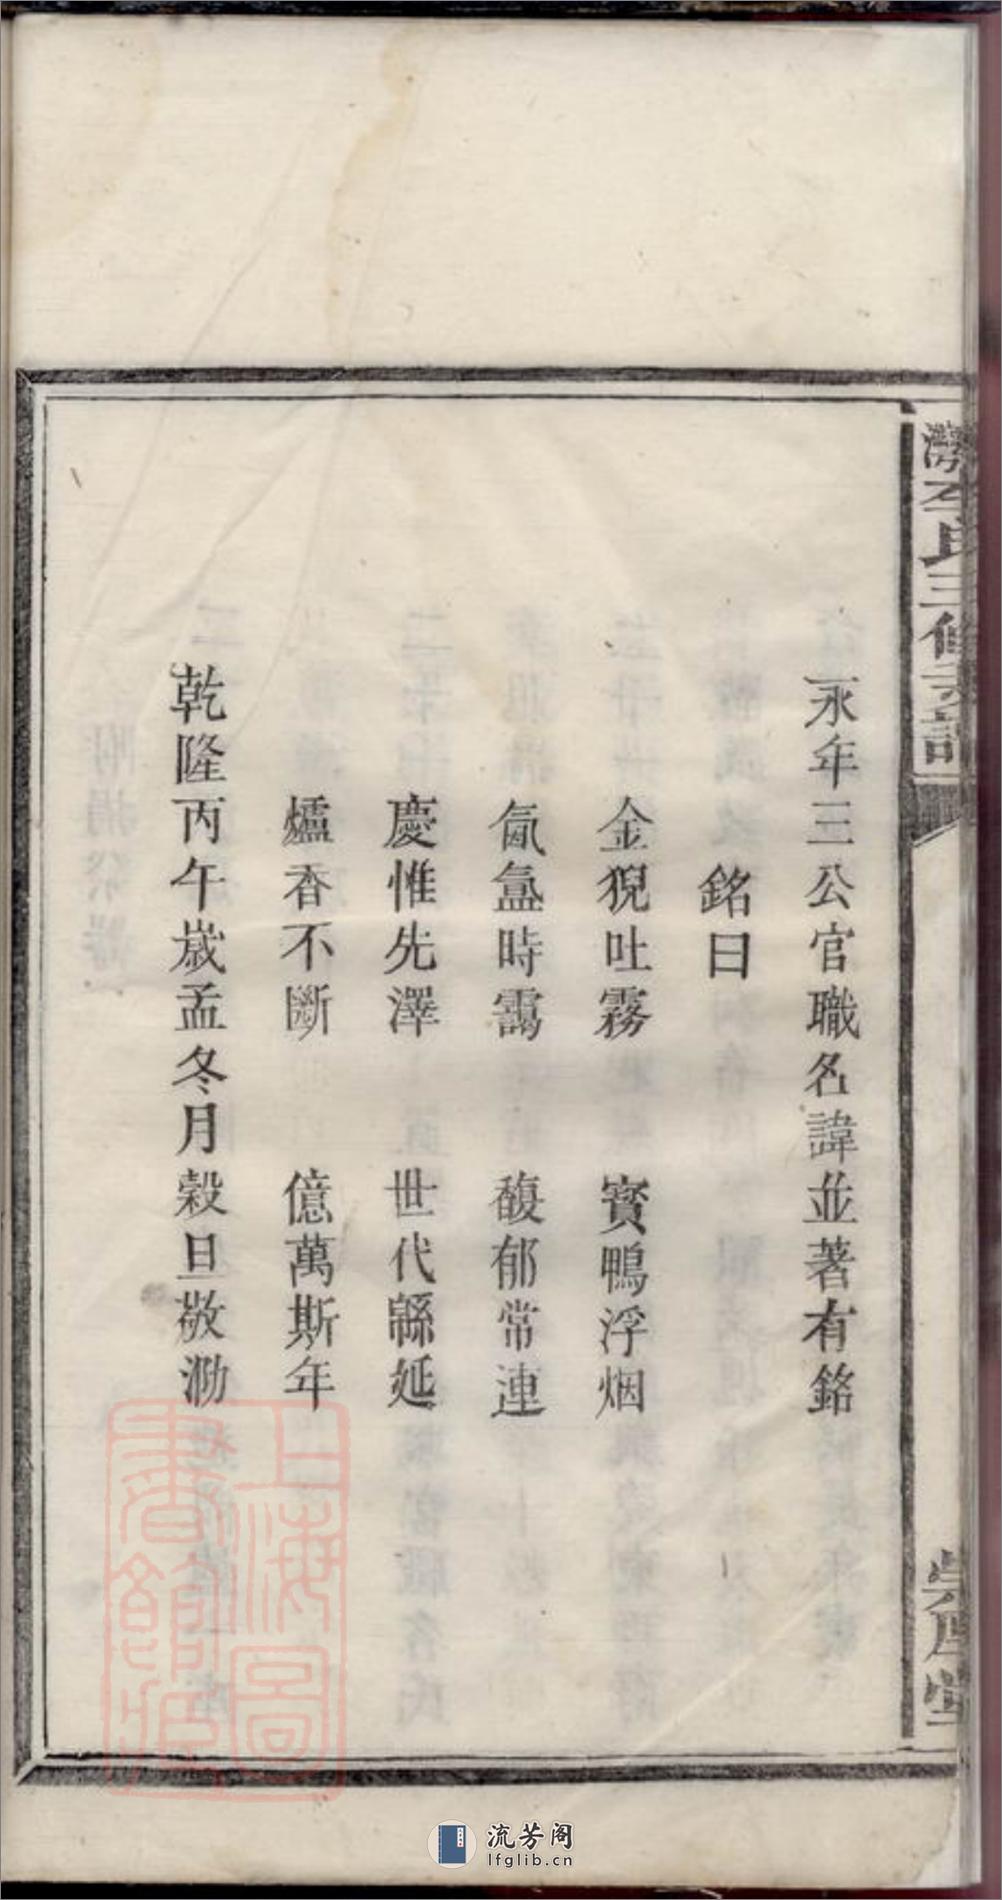 李氏三修支譜
永年三公官職名諱並著有銘
銘曰
金猊吐霧 寳鴨浮烟
氤氳時靄 馥郁常連
慶惟先澤 世代緜延
爐香不斷 億萬斯年
乾隆丙午嵗孟冬月榖旦敬泐
上海圖書館藏
流芳阁
lfglib.cn